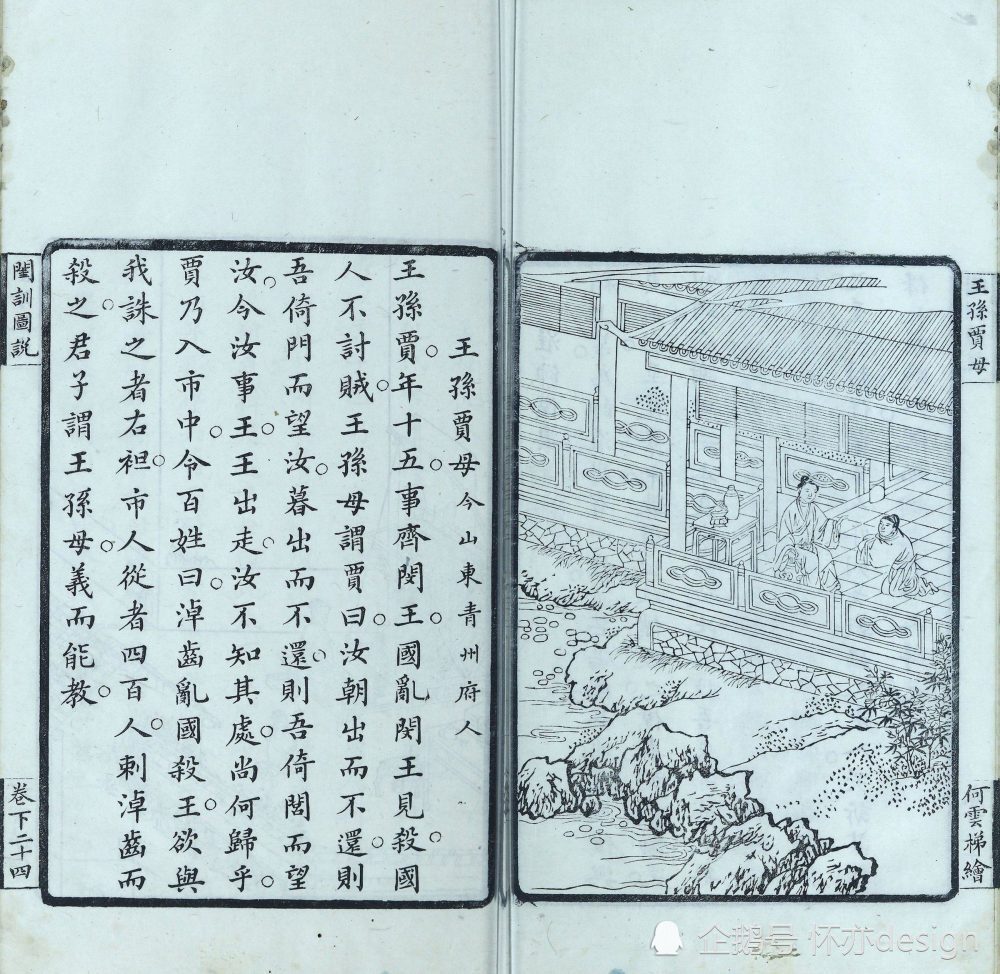 王孫賈母
何雲梯繪
王孫賈母今山東青州府人
王孫賈。年十五。事齊閔王。國亂閔王見殺。國
人不討賊。王孫母謂賈曰。汝朝出而不還。則
吾倚門而望汝。暮出而不還。則吾倚閭而望
汝。今汝事王。王出走。汝不知其處。尚何歸乎。
賈乃入市中。令百姓曰。淖齒亂國殺王。欲與
我誅之者右袒。市人從者四百人。刺淖齒而
殺之。君子謂王孫母。義而能教。
閨訓圖說
卷下二十四
企鹅号 怀亦design